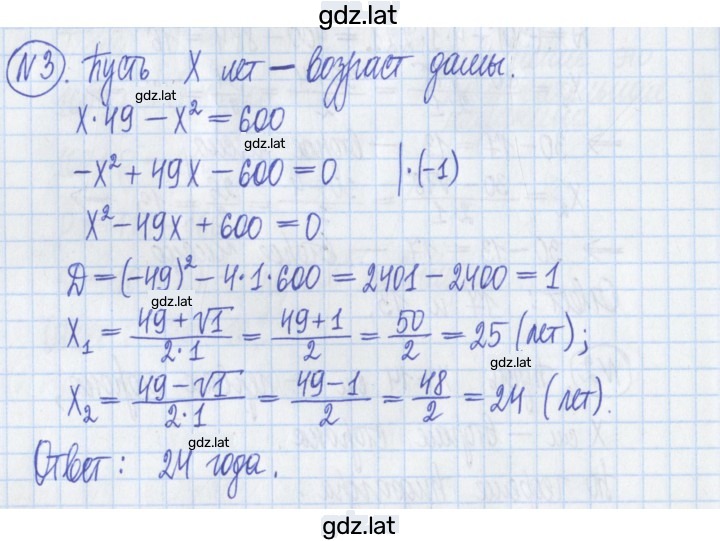 gdz.lat
№3. Пусть x лет – возраст дамы.
gdz.lat
x·49 – x² = 600
gdz.lat
-x² + 49x – 600 = 0 |·(-1)
x² – 49x + 600 = 0.
Д = (-49)² – 4·1·600 = 2401 – 2400 = 1
gdz.lat
x₁ = (49 + √1)/(2·1) = (49 + 1)/2 = 50/2 = 25 (лет);
gdz.lat
x₂ = (49 – √1)/(2·1) = (49 – 1)/2 = 48/2 = 24 (лет).
gdz.lat
Ответ: 24 года.
gdz.lat